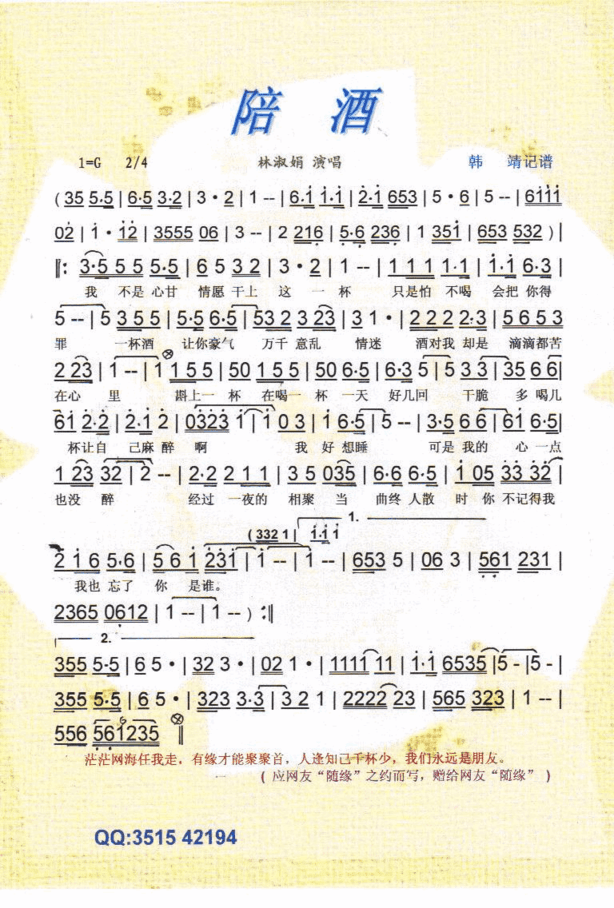 陪 酒
1=G 2/4 林淑娟 演唱 韩 靖记谱
(35 5·5|6·5 3·2|3·2|1--|6·i i·i|2·i 653|5·6|5--|6iii
02|i·i2|3555 06|3--|2 216|5·6 236|1 35i|653 532)|
‖: 3·5 5 5 5·5|6 5 3 2|3·2|1--|1 1 1 1 1·1|i·i 6·3|
我 不是 心甘 情愿 干上 这 一 杯 只是怕 不喝 会把 你得
5--|5 3 5 5|5·5 6·5|532 3 23|3 1·|2 2 2 2·3|5 6 5 3
罪 一杯酒 让你豪气 万千 意乱 情迷 酒对我 却是 滴滴都苦
2 23|1--|1 1 5 5|50 1 5 5|50 6·5|6·3 5|5 3 3|3 5 6 6|
在心 里 斟上一 杯 在喝一 杯 一天 好几回 干脆 多 喝几
6i 2·2|2·i 2|0323 i|i 0 3|i 6·5|5--|3·5 6 6|6i 6·5|
杯让自 己麻 醉 啊 我 好 想睡 可是 我的 心 一点
1 23 32|2--|2·2 2 1 1|3 5 035|6·6 6·5|i 05 33 32|
也没 醉 经过 一夜的 相聚 当 曲终 人散 时 你 不记得我
(332 1| i·i i 1.
2 i 6 5·6|5 6 i 23i|i--|i--|653 5|06 3|561 231|
我也 忘了 你 是谁。
2365 0612|1--|1--):‖
2.
355 5·5|6 5·|32 3·|02 1·|1111 11|i·i 6535|5-|5-|
355 5·5|6 5·|323 3·3|3 2 1|2222 23|565 323|1--|
556 561235 ‖
茫茫网海任我走，有缘才能聚聚首，人逢知己千杯少，我们永远是朋友。
(应网友“随缘”之约而写，赠给网友“随缘”)
QQ:3515 42194